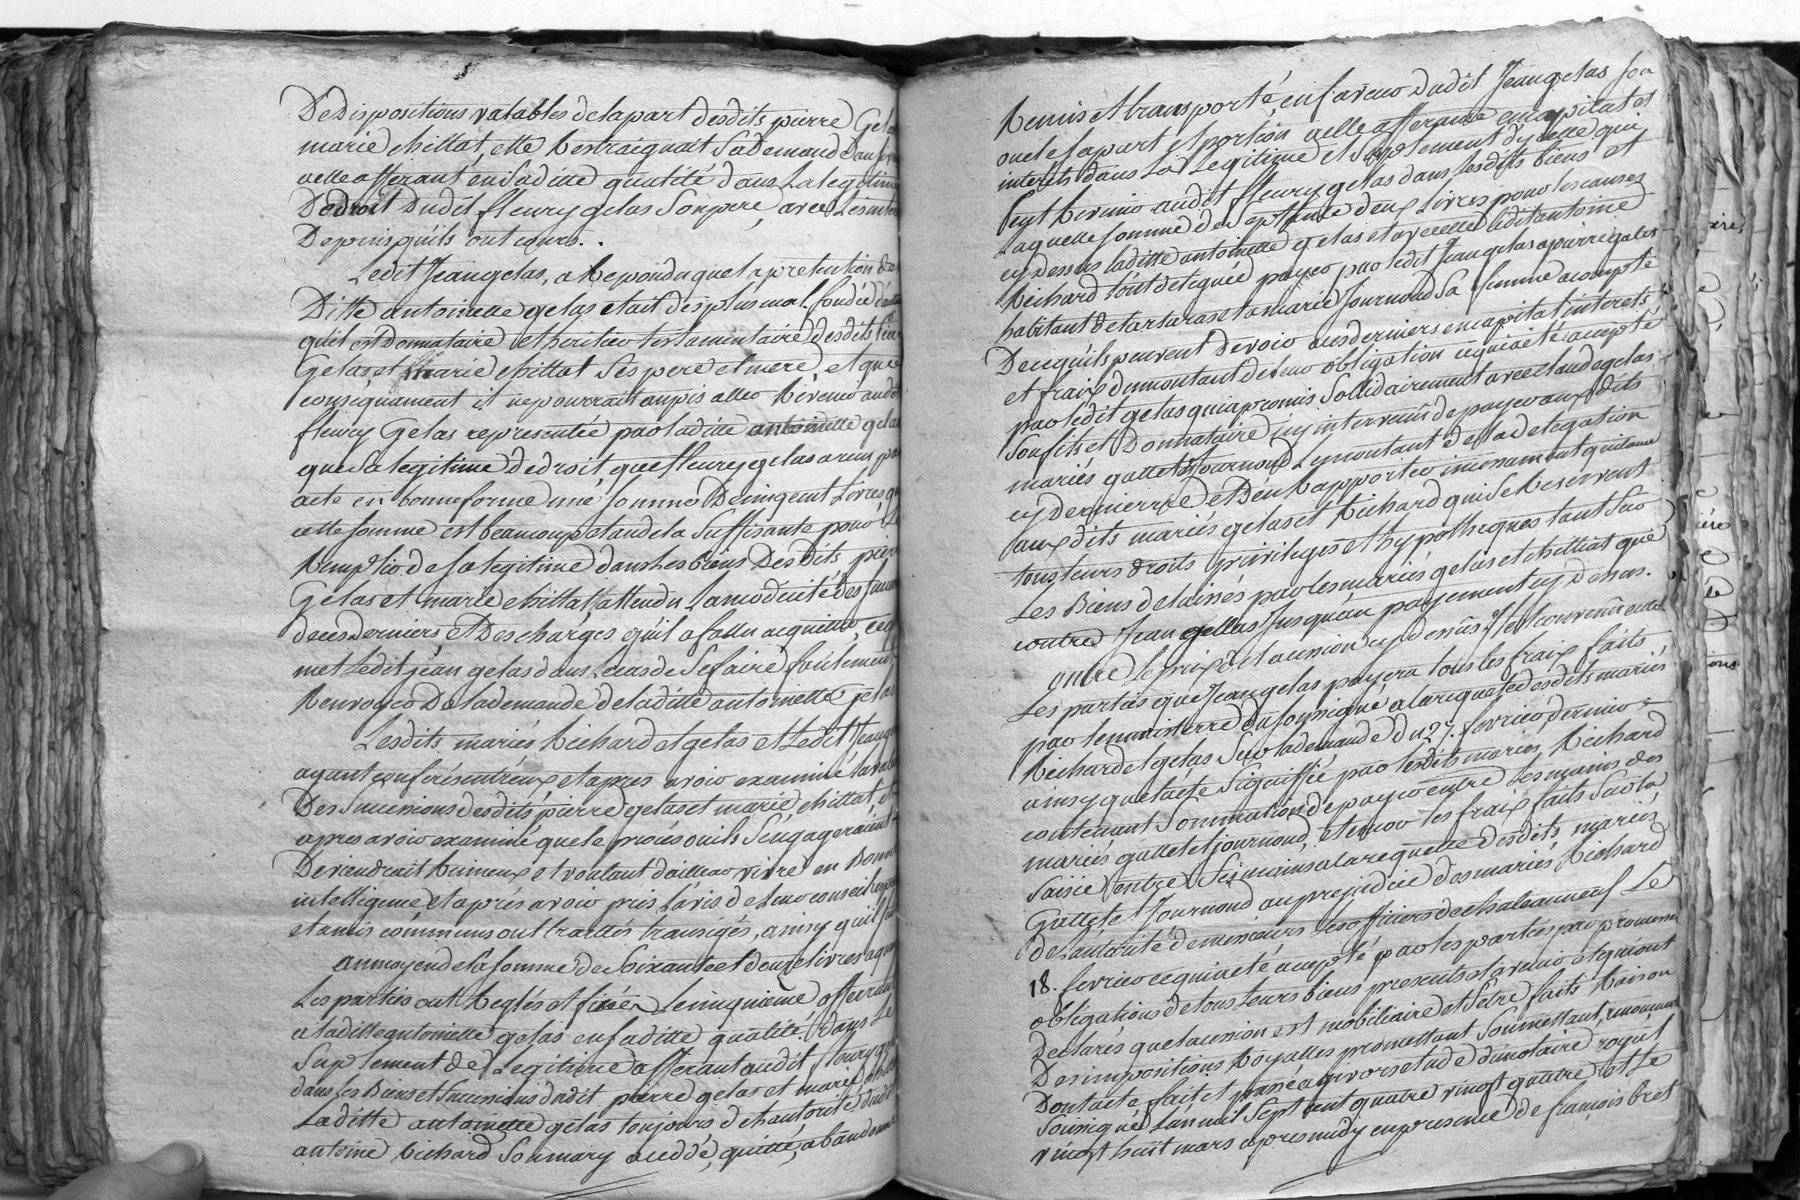 De dispositions valables de la part desdits pierre Gelas
marie chillat, elle Restraignait Sa Demande
a elle afferant en Sa ditte qualité dans La legitime
De droit Dudit fleury gelas Son pere, avec Les inter
Depuis qu'ils ont cours.
Ledit Jean gelas, a Repondu que la pretention de la
Ditte antoinette gelas etait des plus mal fondée
qu'il est Donnataire et heritier testamentaire desdits
Gelas et Marie chillat Ses pere et mere, et que
conséquament il ne pourrait
fleury Gelas representée par la ditte antoinette gelas
que Sa legitime De droit, que fleury gelas a reçu par
acte en bonne forme une Somme De cinq cent Livres que
cette Somme est beaucoup et audela Suffisante pour Le
Remplir de Sa legitime dans Les biens Desdits pierre
Gelas et marie chillat, attendu La modicité des
deces derniers et Des charges qu'il a fallu acquitter, ce qui
met Ledit jean gelas dans Le cas de Se faire facilement
Renvoyer De la demande de la ditte antoinette gelas
Lesdits mariés Richard et gelas et Ledit Jean gelas
ayant conféré entr'eux, et après avoir examiné La valeur
Des Successions desdits pierre gelas et marie chillat, et
après avoir examiné que le procès ou ils S'engageraient
Deviendrait Ruineux, et voulant d'ailleur vivre en Bonne
intelligence et après avoir pris L'avis de Leur conseil
et amis communs ont traittés, transigés, ainsy qu'il Suit
au moyen de la Somme de Soixante et douze livres a quoy
Les parties ont Reglés et fixés Le cinquieme afferant
a la ditte antoinette gelas en Sa ditte qualité, dans Le
Suplement de Legitime afferant audit fleury gelas
dans les Biens et Successions dudit pierre gelas et marie chillat
La ditte antoinette gelas toujours de L'autorité dudit
antoine Richard Son mary a cedé, quitté, abandonné
Remis et transporté, en faveur dudit Jean gelas Son
oncle Sa part et portion a elle afferante en capital et
interets dans La Legitime et Suplement d'ycelle qui
peut Revenir audit fleury gelas dans Lesdits biens et
Laquelle Somme de Septante deux Livres pour les causes
cy dessus la ditte antoinette gelas et avec elle ledit antoine
Richard l'ont deleguée payer par ledit Jean gelas a pierre
habitant de tartaras et a marie Journoud Sa femme a compte
De ce qu'ils peuvent devoir a ces derniers en capital interets
et fraix du montant de leur obligation ce qui a eté accepté
par ledit gelas qui a promis Sollidairement avec claude gelas
Son fils et Donnataire icy intervenû de payer aux dits
mariés gattet et Journoud Le montant de la delegation
cy derniere et D'en Rapporter incessament quittance
aux dits mariés gelas et Richard qui Se Reservent
tous leurs droits privileges et hypotheques tant Sur
Les Biens delaissés par les mariés gelas et chillat que
contre Jean gellas Jusqu'au payement cy dessus.
outre le prix de la cession cy dessus il est convenû entre
Les parties que Jean gelas payera tous les fraix faits
par le ministerre du Soussigné a la requette desdits mariés
Richard et gelas Sur la demande du 27. fevrier dernier
ainsy que l'acte Signiffié par lesdits mariés Richard
contenant Sommation de payer entre les mains des
mariés gattet et journoud, et encor les fraix faits Sur la
Saisie entre Ses mains a la requette desdits mariés
Gattet et Journoud au prejudice des mariés Richard
de l'autorité de messieurs Les officiers de chateauneuf Le
18. fevrier ce qui a eté accepté par les parties par promesse
obligations de tous leurs biens presents et avenir et qui ont
Declarés que la cession est mobiliaire et S'etre faits Raison
Des impositions Royalles promettant Soumettant, renonceant
Dont acte fait et passé a givors etude du notaire royal
Soussigné L'an mil Sept cent quatre vingt quatre et le
vingt huit mars apres midy en presence de françois bret